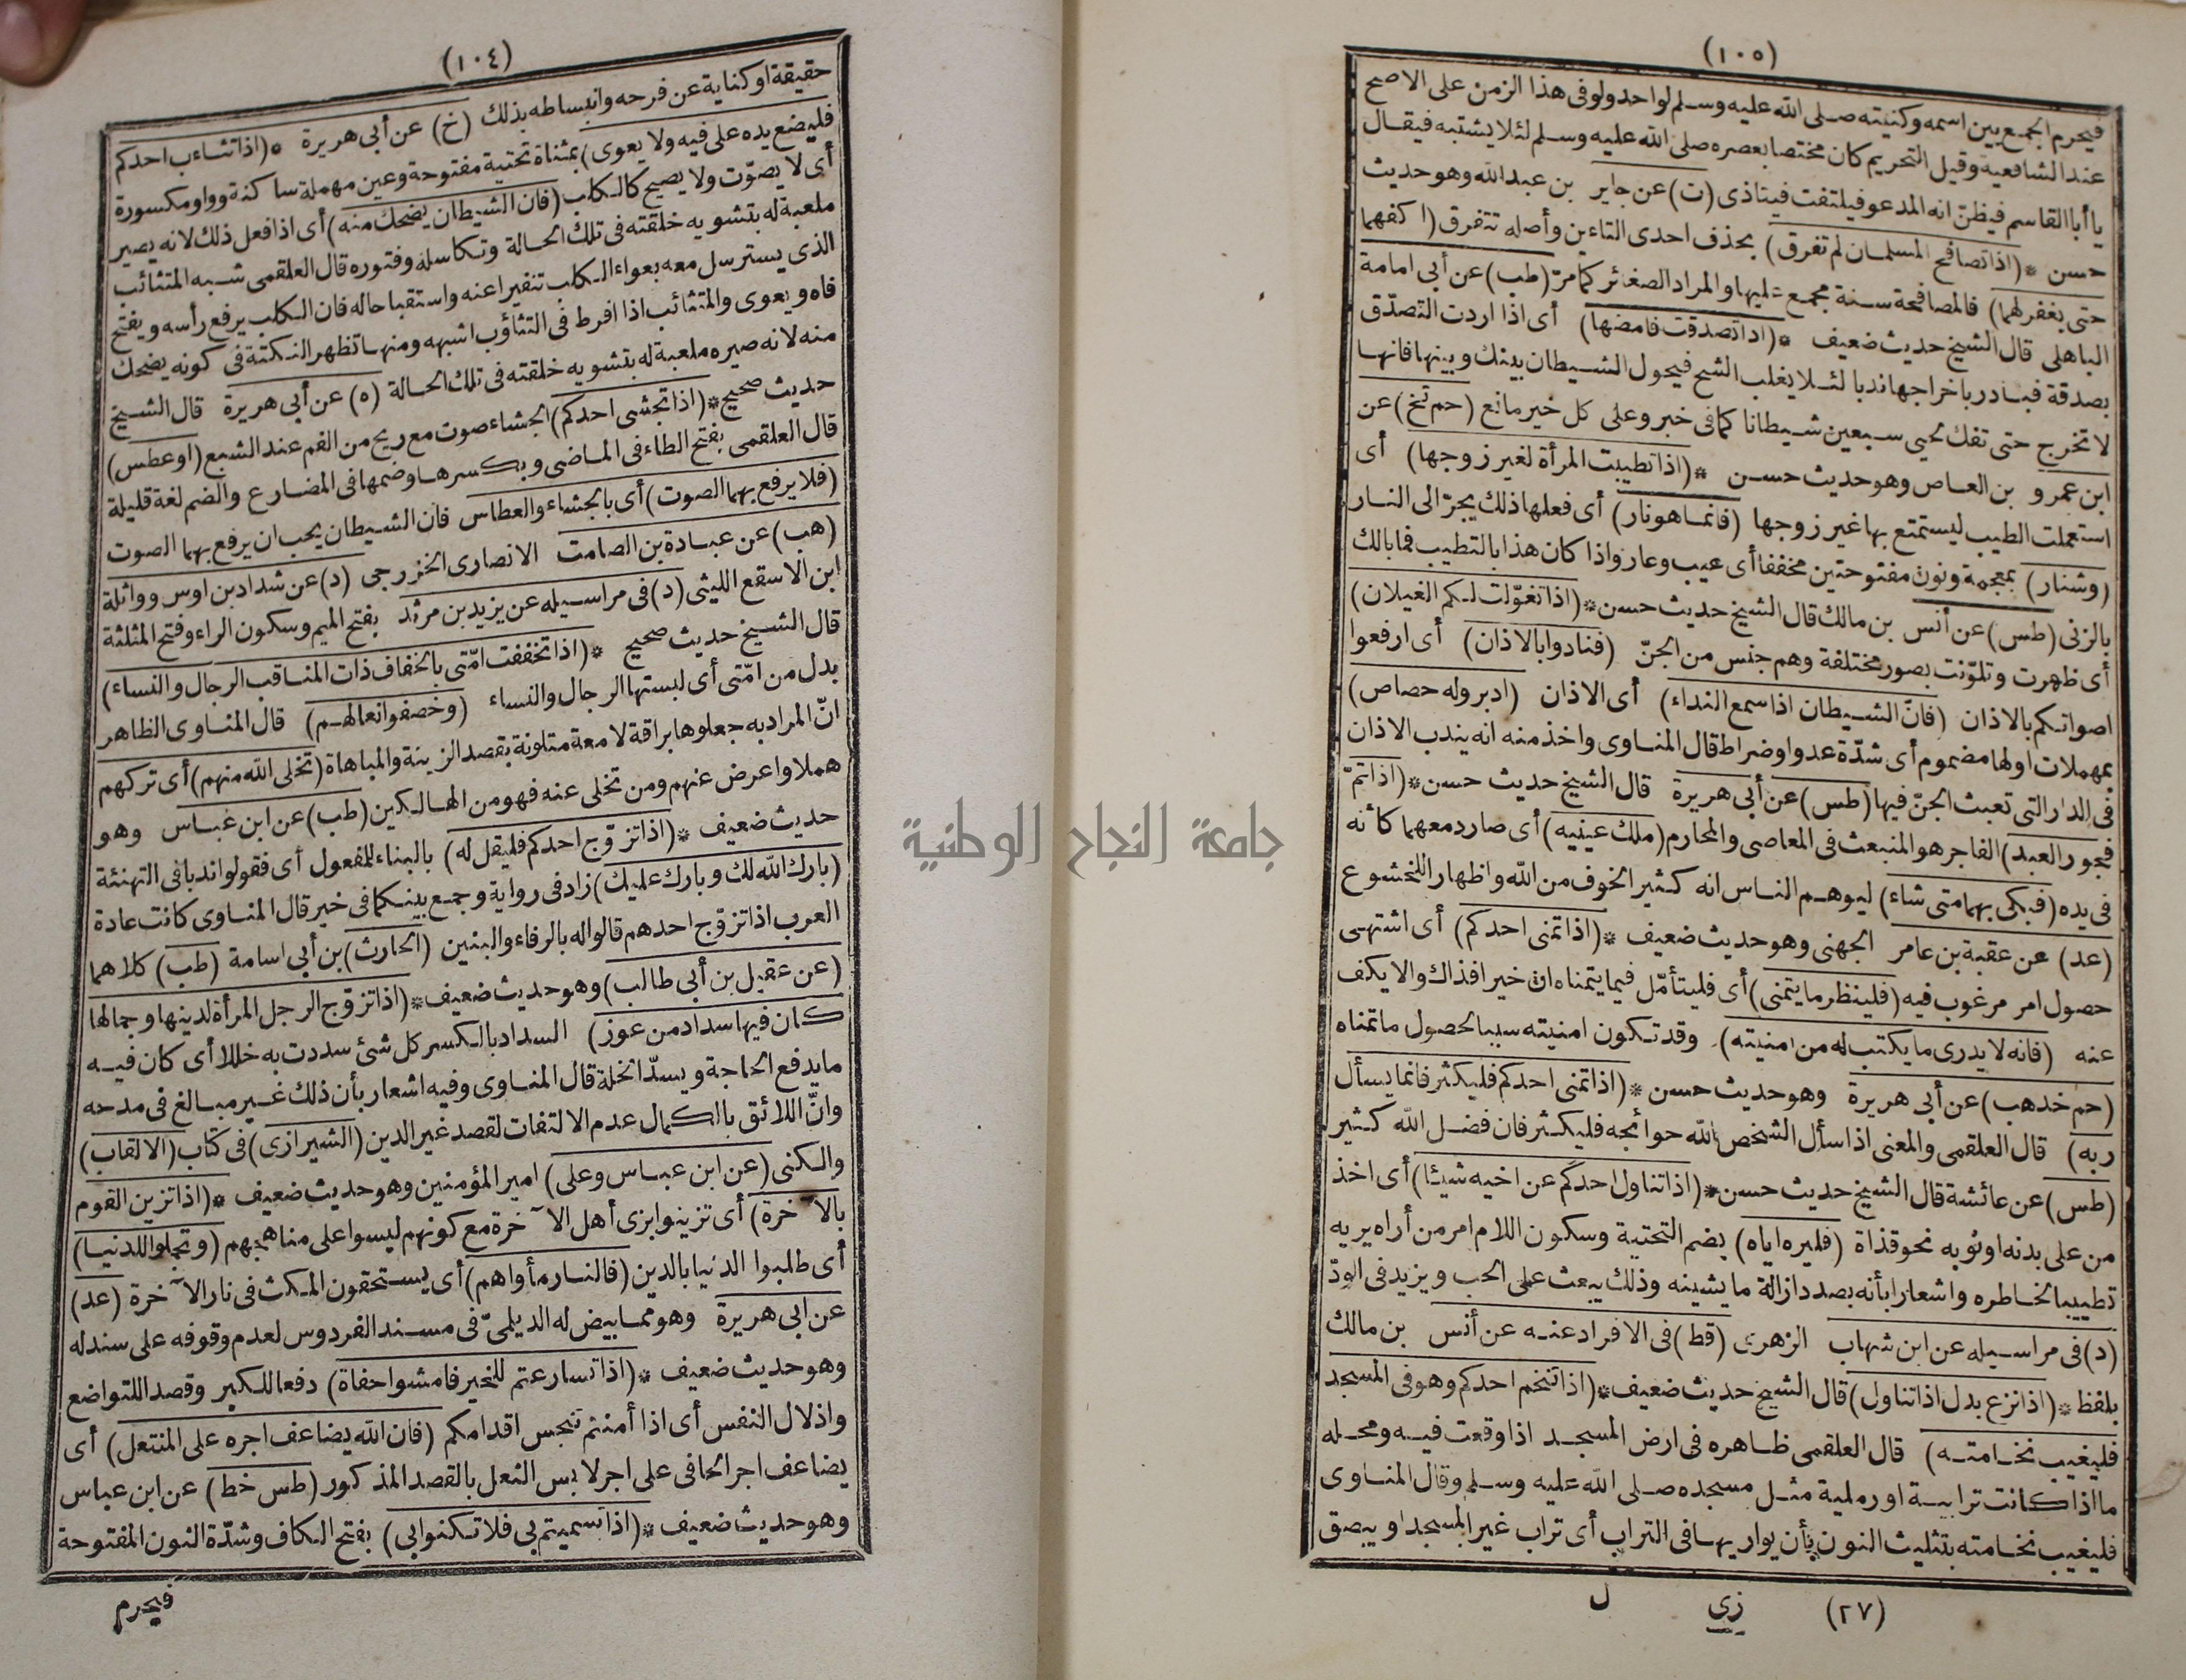 (١٠٤)
حقيقة او كناية عن فرحه وانبساطه بذلك (خ) عن أبى هريرة * (اذا تثاءب احدكم
فليضع يده على فيه ولا يعوى) بمثناة تحتية مفتوحة وعين مهملة ساكنة وواو مكسورة
أى لا يصوّت ولا يصيح كالكلب (فان الشيطان يضحك منه) أى اذا فعل ذلك لانه يصير
ملعبة له بتشويه خلقته فى تلك الحالة وتكاسله وفتوره قال العلقمى شبه المتثائب
الذى يسترسل معه بعواء الكلب تنفيرا عنه واستقباحا له فان الكلب يرفع رأسه ويفتح
فاه ويعوى والمتثائب اذا افرط فى التثاؤب اشبهه ومنها تظهر النكتة فى كونه يضحك
منه لانه صيره ملعبة له بتشويه خلقته فى تلك الحالة (ه) عن أبى هريرة قال الشيخ
حديث صحيح * (اذا تجشى احدكم) الجشاء صوت مع ريح من الفم عند الشبع (او عطس)
قال العلقمى بفتح الطاء فى الماضى وبكسرها وضمها فى المضارع والضم لغة قليلة
(فلا يرفع بهما الصوت) أى بالجشاء والعطاس فان الشيطان يحب ان يرفع بهما الصوت
(هب) عن عبادة بن الصامت الانصارى الخزرجى (د) عن شداد بن اوس وواثلة
ابن الاسقع الليثى (د) فى مراسيله عن يزيد بن مرثد بفتح الميم وسكون الراء وفتح المثلثة
قال الشيخ حديث صحيح * (اذا تخففت امّتى بالخفاف ذات المناقب الرجال والنساء)
بدل من امّتى أى لبستها الرجال والنساء (وخصفوا نعالهم) قال المناوى الظاهر
انّ المراد به جعلوها براقة لامعة متلونة بقصد الزينة والمباهاة (تخلى الله منهم) أى تركهم
هملا واعرض عنهم ومن تخلى عنه فهو من الهالكين (طب) عن ابن عباس وهو
حديث ضعيف * (اذا تزوّج احدكم فليقل له) بالبناء للمفعول أى فقولوا ندبا فى التهنئة
(بارك الله لك وبارك عليك) زاد فى رواية وجمع بينكما فى خير قال المناوى كانت عادة
العرب اذا تزوّج احدهم قالوا له بالرفاء والبنين (الحارث) بن أبى اسامة (طب) كلاهما
(عن عقيل بن أبى طالب) وهو حديث ضعيف * (اذا تزوّج الرجل المرأة لدينها وجمالها
كان فيها سداد من عوز) السداد بالكسر كل شئ سددت به خللا أى كان فيه
ما يدفع الحاجة ويسدّ الخلة قال المناوى وفيه اشعار بأن ذلك غير مبالغ فى مدحه
وانّ اللائق بالكمال عدم الالتفات لقصد غير الدين (الشيرازى) فى كتاب (الالقاب)
والكنى (عن ابن عباس وعلى) امير المؤمنين وهو حديث ضعيف * (اذا تزين القوم
بالآخرة) أى تزينوا بزى أهل الآخرة مع كونهم ليسوا على مناهجهم (وتجملوا للدنيا)
أى طلبوا الدنيا بالدين (فالنار مأواهم) أى يستحقون المكث فى نار الآخرة (عد)
عن ابى هريرة وهو مما بيض له الديلمىّ فى مسند الفردوس لعدم وقوفه على سند له
وهو حديث ضعيف * (اذا تسارعتم للخير فامشوا حفاة) دفعا للكبر وقصد اللتواضع
واذلال النفس أى اذا أمنتم تنجس اقدامكم (فان الله يضاعف اجره على المنتعل) أى
يضاعف اجر الحافى على اجر لابس النعل بالقصد المذكور (طس خط) عن ابن عباس
وهو حديث ضعيف * (اذا تسميتم بى فلا تكنوا بى) بفتح الكاف وشدّة النون المفتوحة
فيحرم
(١٠٥)
فيحرم الجمع بين اسمه وكنيته صلى الله عليه وسلم لواحد ولو فى هذا الزمن على الاصح
عند الشافعية وقيل التحريم كان مختصا بعصره صلى الله عليه وسلم لئلا يشتبه فيقال
يا أبا القاسم فيظنّ انه المدعو فيلتفت فيتاذى (ت) عن جابر بن عبد الله وهو حديث
حسن * (اذا تصافح المسلمان لم تفرق) بحذف احدى التاءين وأصله تتفرق (اكفهما
حتى يغفر لهما) فالمصافحة سنة مجمع عليها والمراد الصغائر كما مرّ (طب) عن أبى امامة
الباهلى قال الشيخ حديث ضعيف * (اذا تصدقت فامضها) أى اذا اردت التصدّق
بصدقة فبادر باخراجها ندبا لئلا يغلب الشح فيحول الشيطان بينك وبينها فانها
لا تخرج حتى تفك لحيى سبعين شيطانا كما فى خبر وعلى كل خير مانع (حم تخ) عن
ابن عمرو بن العاص وهو حديث حسن * (اذا تطيبت المرأة لغير زوجها) أى
استعملت الطيب ليستمتع بها غير زوجها (فانما هو نار) أى فعلها ذلك يجرّ الى النار
(وشنار) بمعجمة ونون مفتوحتين مخففا أى عيب وعار واذا كان هذا بالتطيب فما بالك
بالزنى (طس) عن أنس بن مالك قال الشيخ حديث حسن * (اذا تغوّلت لكم الغيلان)
أى ظهرت وتلوّنت بصور مختلفة وهم جنس من الجنّ (فنادوا بالاذان) أى ارفعوا
اصواتكم بالاذان (فانّ الشيطان اذا سمع النداء) أى الاذان (ادبر وله حصاص)
بمهملات اولها مضموم أى شدّة عدو او ضراط قال المناوى واخذ منه انه يندب الاذان
فى الدار التى تعبث الجنّ فيها (طس) عن أبى هريرة قال الشيخ حديث حسن * (اذا تمّ
فجور العبد) الفاجر هو المنبعث فى المعاصى والمحارم (ملك عينيه) أى صار دمعهما كأنه
فى يده (فبكى بهما متى شاء) ليوهم الناس انه كثير الخوف من الله واظهار اللخشوع
(عد) عن عقبة بن عامر الجهنى وهو حديث ضعيف * (اذا تمنى احدكم) أى اشتهى
حصول امر مرغوب فيه (فلينظر ما يتمنى) أى فليتأمّل فيما يتمناه ان خيرا فذاك والا يكف
عنه (فانه لا يدرى ما يكتب له من امنيته) وقد تكون امنيته سببا لحصول ما تمناه
(حم خد هب) عن أبى هريرة وهو حديث حسن * (اذا تمنى احدكم فليكثر فانما يسأل
ربه) قال العلقمى والمعنى اذا سأل الشخص الله حوائجه فليكثر فان فضل الله كثير
(طس) عن عائشة قال الشيخ حديث حسن * (اذا تناول احدكم عن اخيه شيئا) أى اخذ
من على بدنه او ثوبه نحو قذاة (فليره اياه) بضم التحتية وسكون اللام امر من أراه يريه
تطييبا لخاطره واشعارا بأنه بصدد ازالة ما يشينه وذلك يبعث على الحب ويزيد فى الودّ
(د) فى مراسيله عن ابن شهاب الزهرى (قط) فى الافراد عنه عن أنس بن مالك
بلفظ * (اذا نزع بدل اذا تناول) قال الشيخ حديث ضعيف * (اذا تنخم احدكم وهو فى المسجد
فليغيب نخامته) قال العلقمى ظاهره فى ارض المسجد اذا وقعت فيه ومحله
ما اذا كانت ترابية او رملية مثل مسجده صلى الله عليه وسلم وقال المناوى
فليغيب نخامته بتثليث النون بأن يواريها فى التراب أى تراب غير المسجد او يبصق
(٢٧) زى ل
جامعة النجاح الوطنية